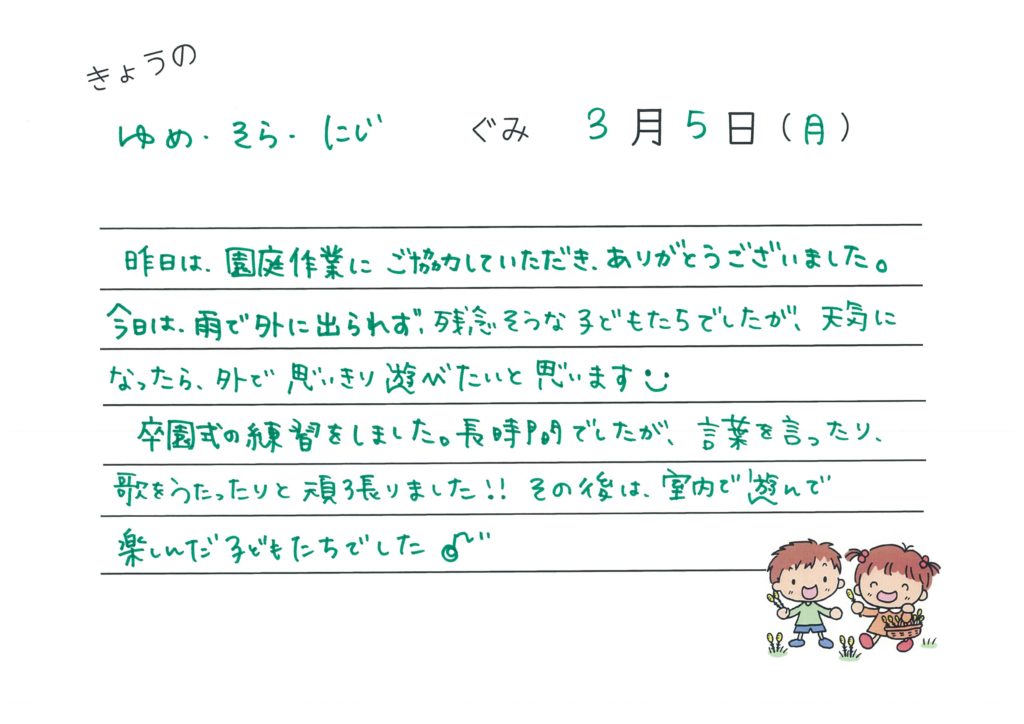 きょうの
ゆめ・そら・にじ ぐみ 3月5日(月)
昨日は、園庭作業にご協力していただき、ありがとうございました。
今日は、雨で外に出られず、残念そうな子どもたちでしたが、天気に
なったら、外で思いきり遊べたいと思います
卒園式の練習をしました。長時間でしたが、言葉を言ったり、
歌をうたったりと頑張りました!! その後は、室内で遊んで
楽しんだ子どもたちでした